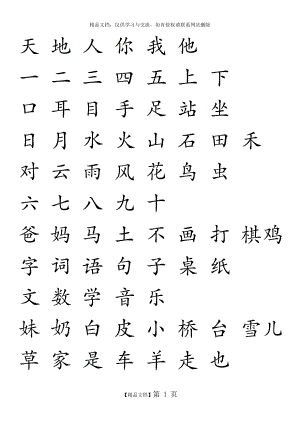 精品文档，仅供学习与交流，如有侵权请联系网站删除
天 地 人 你 我 他
一 二 三 四 五 上 下
口 耳 目 手 足 站 坐
日 月 水 火 山 石 田 禾
对 云 雨 风 花 鸟 虫
六 七 八 九 十
爸 妈 马 土 不 画 打 棋 鸡
字 词 语 句 子 桌 纸
文 数 学 音 乐
妹 奶 白 皮 小 桥 台 雪 儿
草 家 是 车 羊 走 也
【精品文档】第 1 页